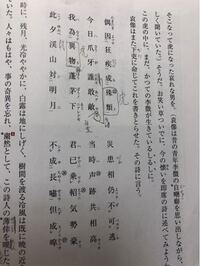 そこなって虎になった哀れな男を。(袁傪は昔の青年李徴の自嘲癖を思い出しながら、
しく聞いていた。)そうだ。お笑い草ついでに、今の懐いを即席の詩に述べてみよう
この虎の中に、まだ、かつての李徴が生きているしるしに。
袁傪はまた下吏に命じてこれを書きとらせた。その詩に言う。
偶因狂疾成殊類 災患相仍不可逃
今日爪牙誰敢敵 当時声跡共相高
我為異物蓬茅下 君已乗軺気勢豪
此夕渓山対明月 不成長嘯但成嘷
時に、残月、光冷ややかに、白露は地にしげく、樹間を渡る冷風は既に暁の近
ていた。人々はもはや、事の奇異を忘れ、粛然として、この詩人の薄倖を嘆じた